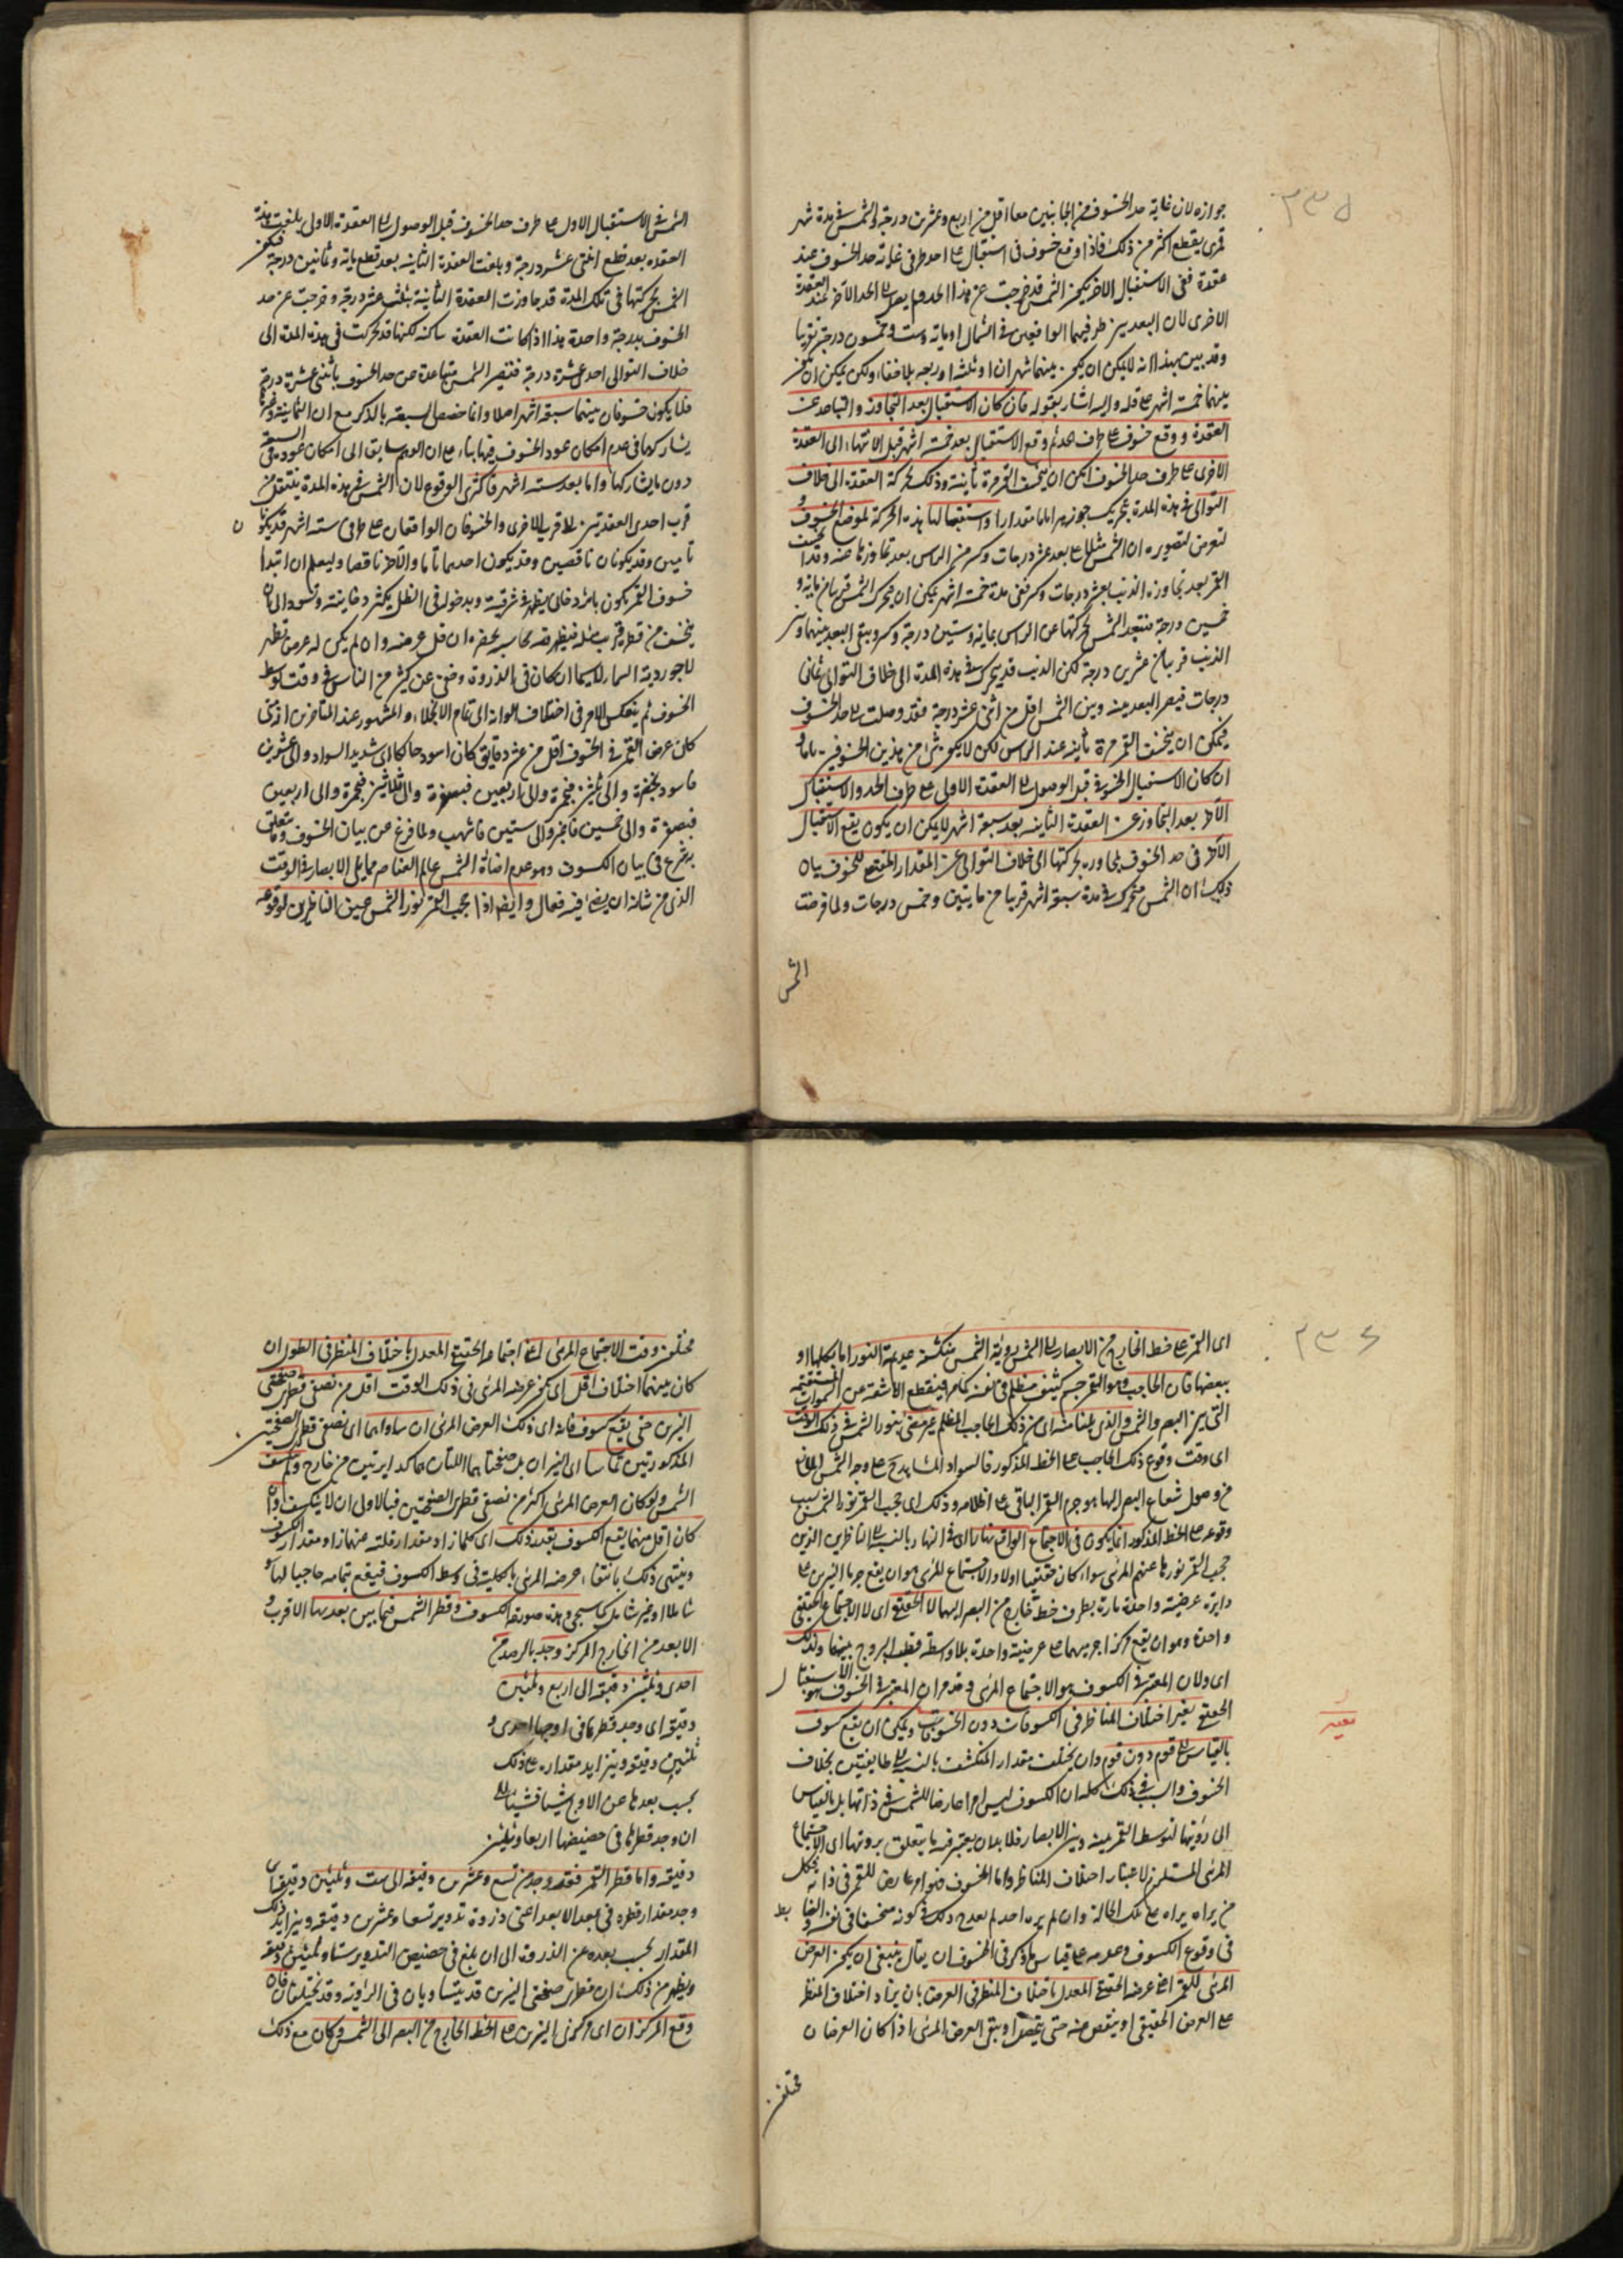 ٢٣٥
جوازه لان غاية حد الخسوف من الجانبين معا اقل من اربع وعشرين درجة والشمس فى مدة شهر
قمرى يقطع اكثر من ذلك فاذا وقع خسوف فى استقبال على احد طرفى غاية حد الخسوف عند
عقدة ففى الاستقبال الاخر يكون الشمس قد خرجت عن هذا الحد ولم يصل الى الحد الآخر عند العقدة
الاخرى لان البعد بين طرفيهما الواقعين فى الشمال او مائة وست وخمسون درجة تقريبا
وقد بين بهذا انه لا يمكن ان يكون بينهما شهران او ثلثة او اربعه بلا خفاء ولكن يمكن ان يكون
بينهما خمسة اشهر على قلة واليه اشار بقوله فان كان الاستقبال بعد التجاوز والتباعد عن
العقدة ووقع خسوف على طرف الحد ثم وقع الاستقبال بعد خمسة اشهر قبل الانتهاء الى العقدة
الاخرى على طرف حد الخسوف امكن ان يخسف القمر مرة ثانية وذلك لحركة العقدة الى خلاف
التوالى فى هذه المدة بتحريك جوزهر اياها مقدارا واستقبالها بهذه الحركة لموضع الخسوف و
لنعرض لتصويره ان الشمس مثلا على بعد عشر درجات وكسر من الراس بعد تجاوزها عنه وقد انخسف
القمر بعد تجاوزه الذنب بعشر درجات وكسر ففى مدة خمسة اشهر يمكن ان يتحرك الشمس قريبا من مائة و
خمسين درجة فتبعد الشمس بحركتها عن الراس بمائة وستين درجة وكسر ويبقى البعد بينها وبين
الذنب قريبا من عشرين درجة لكن الذنب قد يتحرك فى هذه المدة الى خلاف التوالى ثمانى
درجات فيصير البعد بينه وبين الشمس اقل من اثنتى عشر درجة فقد وصلت الى حد الخسوف
فيمكن ان يخسف القمر مرة ثانية عند الراس لكن لا يكون شئ من هذين الخسوفين تاما و
ان كان الاستقبال الخسوفى قبل الوصول الى العقدة الاولى على طرف الحد والاستقبال
الآخر بعد التجاوز عن العقدة الثانية بعد سبعة اشهر لا يمكن ان يكون يقع الاستقبال
الآخر فى حد الخسوف لمجاوزته بحركتها الى خلاف التوالى عن المقدار المقتضى للخسوف بيان
ذلك ان الشمس تتحرك فى مدة سبعة اشهر قريبا من مايتين وخمس درجات ولما فرضت
الشمس
الشمس فى الاستقبال الاول على طرف حد الخسوف قبل الوصول الى العقدة الاولى بلغت هذه
العقدة بعد قطع اثنتى عشر درجة وبلغت العقدة الثانية بعد قطع مائة وثمانين درجة فيكون
الشمس بحركتها فى تلك المدة قد جاوزت العقدة الثانية بثلث عشر درجة وخرجت عن حد
الخسوف بدرجة واحدة هذا اذا كانت العقدة ساكنة لكنها قد تحركت فى هذه المدة الى
خلاف التوالى احد عشرة درجة فتصير الشمس متباعدة عن حد الخسوف باثنتى عشرة درجة
فلا يكون خسوفان بينهما سبعة اشهر اصلا وانما خصص السبعة بالذكر مع ان الثمانية وغيرها
يشاركها فى عدم امكان عود الخسوف فيها بناء على ان الوهم سابق الى امكان عوده فى السبعة
دون ما يشاركها واما بعد ستة اشهر فاكثرى الوقوع لان الشمس فى هذه المدة ينتقل من
قرب احدى العقدتين الى قرب الاخرى والخسوفان الواقعان على طرفى ستة اشهر قد يكونا
ن
تامين وقد يكونان ناقصين وقد يكون احدهما تاما والآخر ناقصا وليعلم ان ابتدا
خسوف القمر يكون باثر دخانى يظهر فى شرقيته وبدخوله فى الظل يكثر دخانيته وتسود الى ان
ينخسف من قطره قريب ثلثه فيظهر فيه نحاسية بحمره ان قل عرضه وان لم يكن له عرض تظهر
لاجوردية السماء لا سيما ان كان فى الذروة وخفى عن كثير من الناس فى وقت توسط
الخسوف ثم ينعكس الامر فى اختلاف الوانه الى تمام الانجلاء والمشهور عند المتاخرين انه متى
كان عرض القمر فى الخسوف اقل من عشر دقايق كان اسود حالكا اى شديد السواد والى عشرين
فاسود بخضرة والى ثلثين فبحمرة والى اربعين فبصفرة
فبصفرة والى خمسين فاغبر والى ستين فاشهب ولما فرغ من بيان الخسوف وما يتعلق
به شرع فى بيان الكسوف وهو عدم اضاءة الشمس عالم العناصر مما يلى الابصار فى الوقت
الذى من شانه ان يضئ فيه فقال وايضا اذا يحجب القمر نور الشمس عن الناظرين لوقوعه
٢٣٦
اى القمر على خط الخارج من الابصار الى الشمس رؤية الشمس منكسفة عديمة النور اما بكلها او
ببعضها فان الحاجب وهو القمر جسم كثيف مظلم فى نفسه كما مر فينقطع الاشعة عن السموات المستقيمة
التى بين البصر والشمس والذى يلينا منه اى من ذلك الحاجب المظلم غير مضئ بنور الشمس فى ذلك الوقت
اى وقت وقوع ذلك الحاجب على الخط المذكور فالسواد المشاهد على وجه الشمس المانع
من وصول شعاع البصر اليها هو جرم القمر الباقى على اظلامه وذلك اى حجب القمر نور الشمس بسبب
وقوعه على الخط المذكور انما يكون فى الاجتماع الواقع نهارا اى فى النهار بالنسبة الى الناظرين الذين
حجب القمر نورها عنهم المرئى سواء كان حقيقيا اولا والاجتماع المرئى هو ان يقع جرما النيرين على
دايرة عرضية واحدة مارة بطرف خط خارج من البصر اليهما لا الحقيقى اى لا الاجتماع الحقيقى
واحدة وهو ان يقع مركزا جرميهما على عرضية واحدة بلا واسطة قطب البروج بينهما ولذلك
اى ولان المعتبر فى الكسوف هو الاجتماع المرئى وقد مر ان المعتبر فى الخسوف هو الاستقبال
الحقيقى يعتبر اختلاف المناظر فى الكسوفات دون الخسوفات ويمكن ان يقع كسوف
بالقياس الى قوم دون قوم وان يختلف مقدار المنكسف بالنسبة الى طايفتين بخلاف
الخسوف والسبب فى ذلك كله ان الكسوف ليس امرا عارضا للشمس فى ذاتها بل بالقياس
الى رؤيتها لتوسط القمر بينه وبين الابصار فلا بد ان يعتبر فيه ما يتعلق برؤيتها اى الاجتماع
المرئى المستلزم لاعتبار اختلاف المناظر واما الخسوف فهو امر عارض للقمر فى ذاته فكل
من يراه يراه على تلك الحالة وان لم يره احد لم يقدح ذلك فى كونه منخسفا فى نفسه وايضا
فى وقوع الكسوف وعدمه على قياس ما ذكر فى الخسوف ان يقال ينبغى ان يكون العرض
المرئى للقمر اعنى عرضه الحقيقى المعدل باختلاف المنظر فى العرض بان يزاد اختلاف المنظر
على العرض الحقيقى او ينقص منه حتى يحصل او يبقى العرض المرئى اذا كان العرضان
مختلفين
مختلفين وقت الاجتماع المرئى اعنى اجتماعه الحقيقى المعدل باختلاف المنظر فى الطول ان
كان بينهما اختلاف اقل اى يكون عرضه المرئى فى ذلك الوقت اقل من نصفى قطرى صفحتى
النيرين حتى يقع كسوف فانه اى ذلك العرض المرئى ان ساواهما اى نصفى قطرى الصفحتين
المذكورتين تماسا اى النيران بل صفحتاهما اللتان هما كدايرتين من خارج ولم يكسف
الشمس ولو كان العرض المرئى اكثر من نصفى قطرى الصفحتين فبالاولى ان لا ينكسف وان
كان اقل منهما يقع الكسوف بقدر ذلك اى كلما زاد مقدار قلته عنهما زاد مقدار الكسوف
وينتهى ذلك بانتفاء عرضه المرئى بالكلية فى وسط الكسوف فيقع بتمامه حاجبا لها و
شاملا او غير شامل كما سيجئ وهذه صورة الكسوف وقطر الشمس فيما بين بعديها الاقرب و
الابعد من الخارج المركز وجد بالرصد من
احدى وثلثين دقيقة الى اربع وثلثين
دقيقة اى وجد قطرها فى اوجها احدى و
ثلثين دقيقة ويتزايد مقداره على ذلك
بحسب بعدها عن الاوج شيئا فشيئا الى
ان وجد قطرها فى حضيضها اربعا وثلثين
دقيقة واما قطر القمر فقد وجد من تسع وعشرين دقيقة الى ست وثلثين دقيقة اى
وجد مقدار قطره فى ابعد الابعد اعنى ذروة تدويره تسعا وعشرين دقيقة ويتزايد ذلك
المقدار بحسب بعده عن الذروة الى ان بلغ فى حضيض التدوير ستا وثلثين دقيقة
ويظهر من ذلك ان قطرى صفحتى النيرين قد يتساويان فى الرؤية وقد يختلفان فان
وقع المركزان اى مركزى النيرين على الخط الخارج من البصر الى الشمس وكان مع ذلك